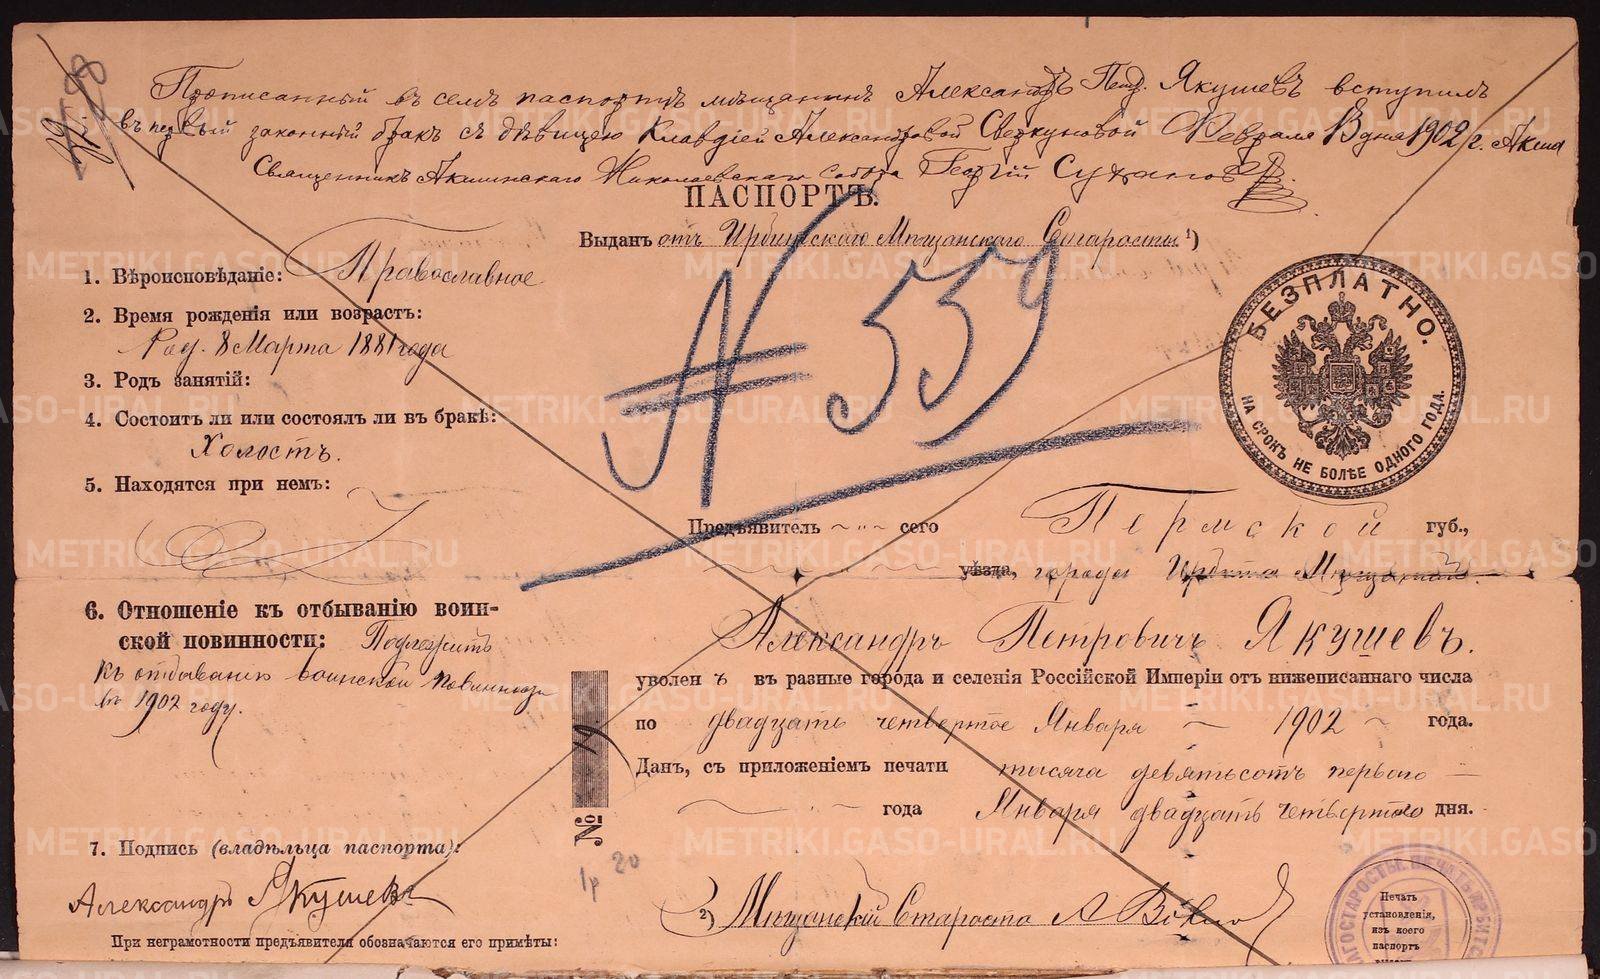 Прописанный въ семъ паспортѣ мѣщанинъ Александръ Пет. Якушевъ вступилъ
въ первый законный бракъ съ дѣвицею Клавдіей Александровой Сверкуновой Февраля 13 дня 1902 г.
Священникъ Николаевскаго Собора Георгій
ПАСПОРТЪ.
Выданъ отъ Ирбитскаго Мѣщанскаго Старосты ¹)
№ 559
1. Вѣроисповѣданіе: Православное
2. Время рожденія или возрастъ:
Род. 8 Марта 1881 года
3. Родъ занятій:
4. Состоитъ ли или состоялъ ли въ бракѣ:
Холостъ.
5. Находятся при немъ:
6. Отношеніе къ отбыванію воин-
ской повинности: Подлежитъ
къ отбыванію воинской повинности
въ 1902 году.
7. Подпись (владѣльца паспорта):
Александръ Якушевъ
При неграмотности предъявителя обозначаются его примѣты:
БЕЗПЛАТНО.
НА СРОКЪ НЕ БОЛѢЕ ОДНОГО ГОДА.
Предъявитель сего Пермской губ.,
уѣзда, города Ирбита Мѣщанинъ
Александръ Петровичъ Якушевъ.
уволенъ въ разные города и селенія Россійской Имперіи отъ нижеписаннаго числа
по двадцать четвертое Января 1902 года.
Данъ, съ приложеніемъ печати тысяча девятьсотъ перваго
года Января двадцать четвертаго дня.
№ 19
1р 20
²) Мѣщанскій Староста
Печать
установленія,
изъ коего
паспортъ
METRIKI.GASO-URAL.RU